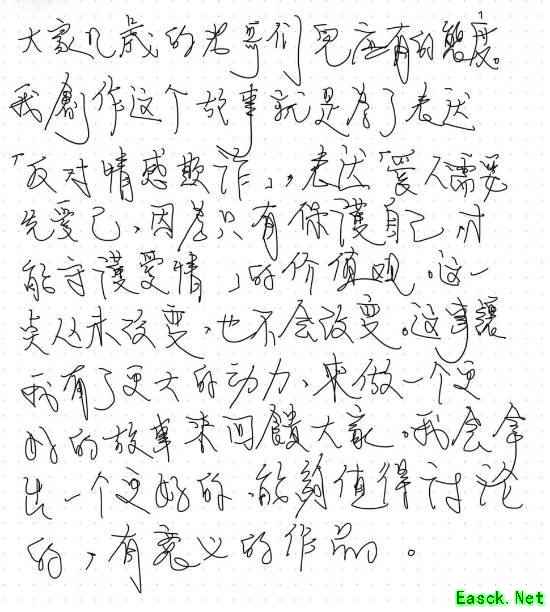 大家几歲的老哥们, 見应有的態度。
我創作这个故事就是為了表达
「反对情感欺诈」，表达「愛人需要
先愛己，因為只有保護自己，才
能守護愛情」的价值观。这一
点从未改变，也不会改变。这事讓
我有了更大的动力，来做一个更
好的故事来回饋大家。我会拿
出一个更好的，能夠值得讨论
的，有意义的作品。
Easck.Net